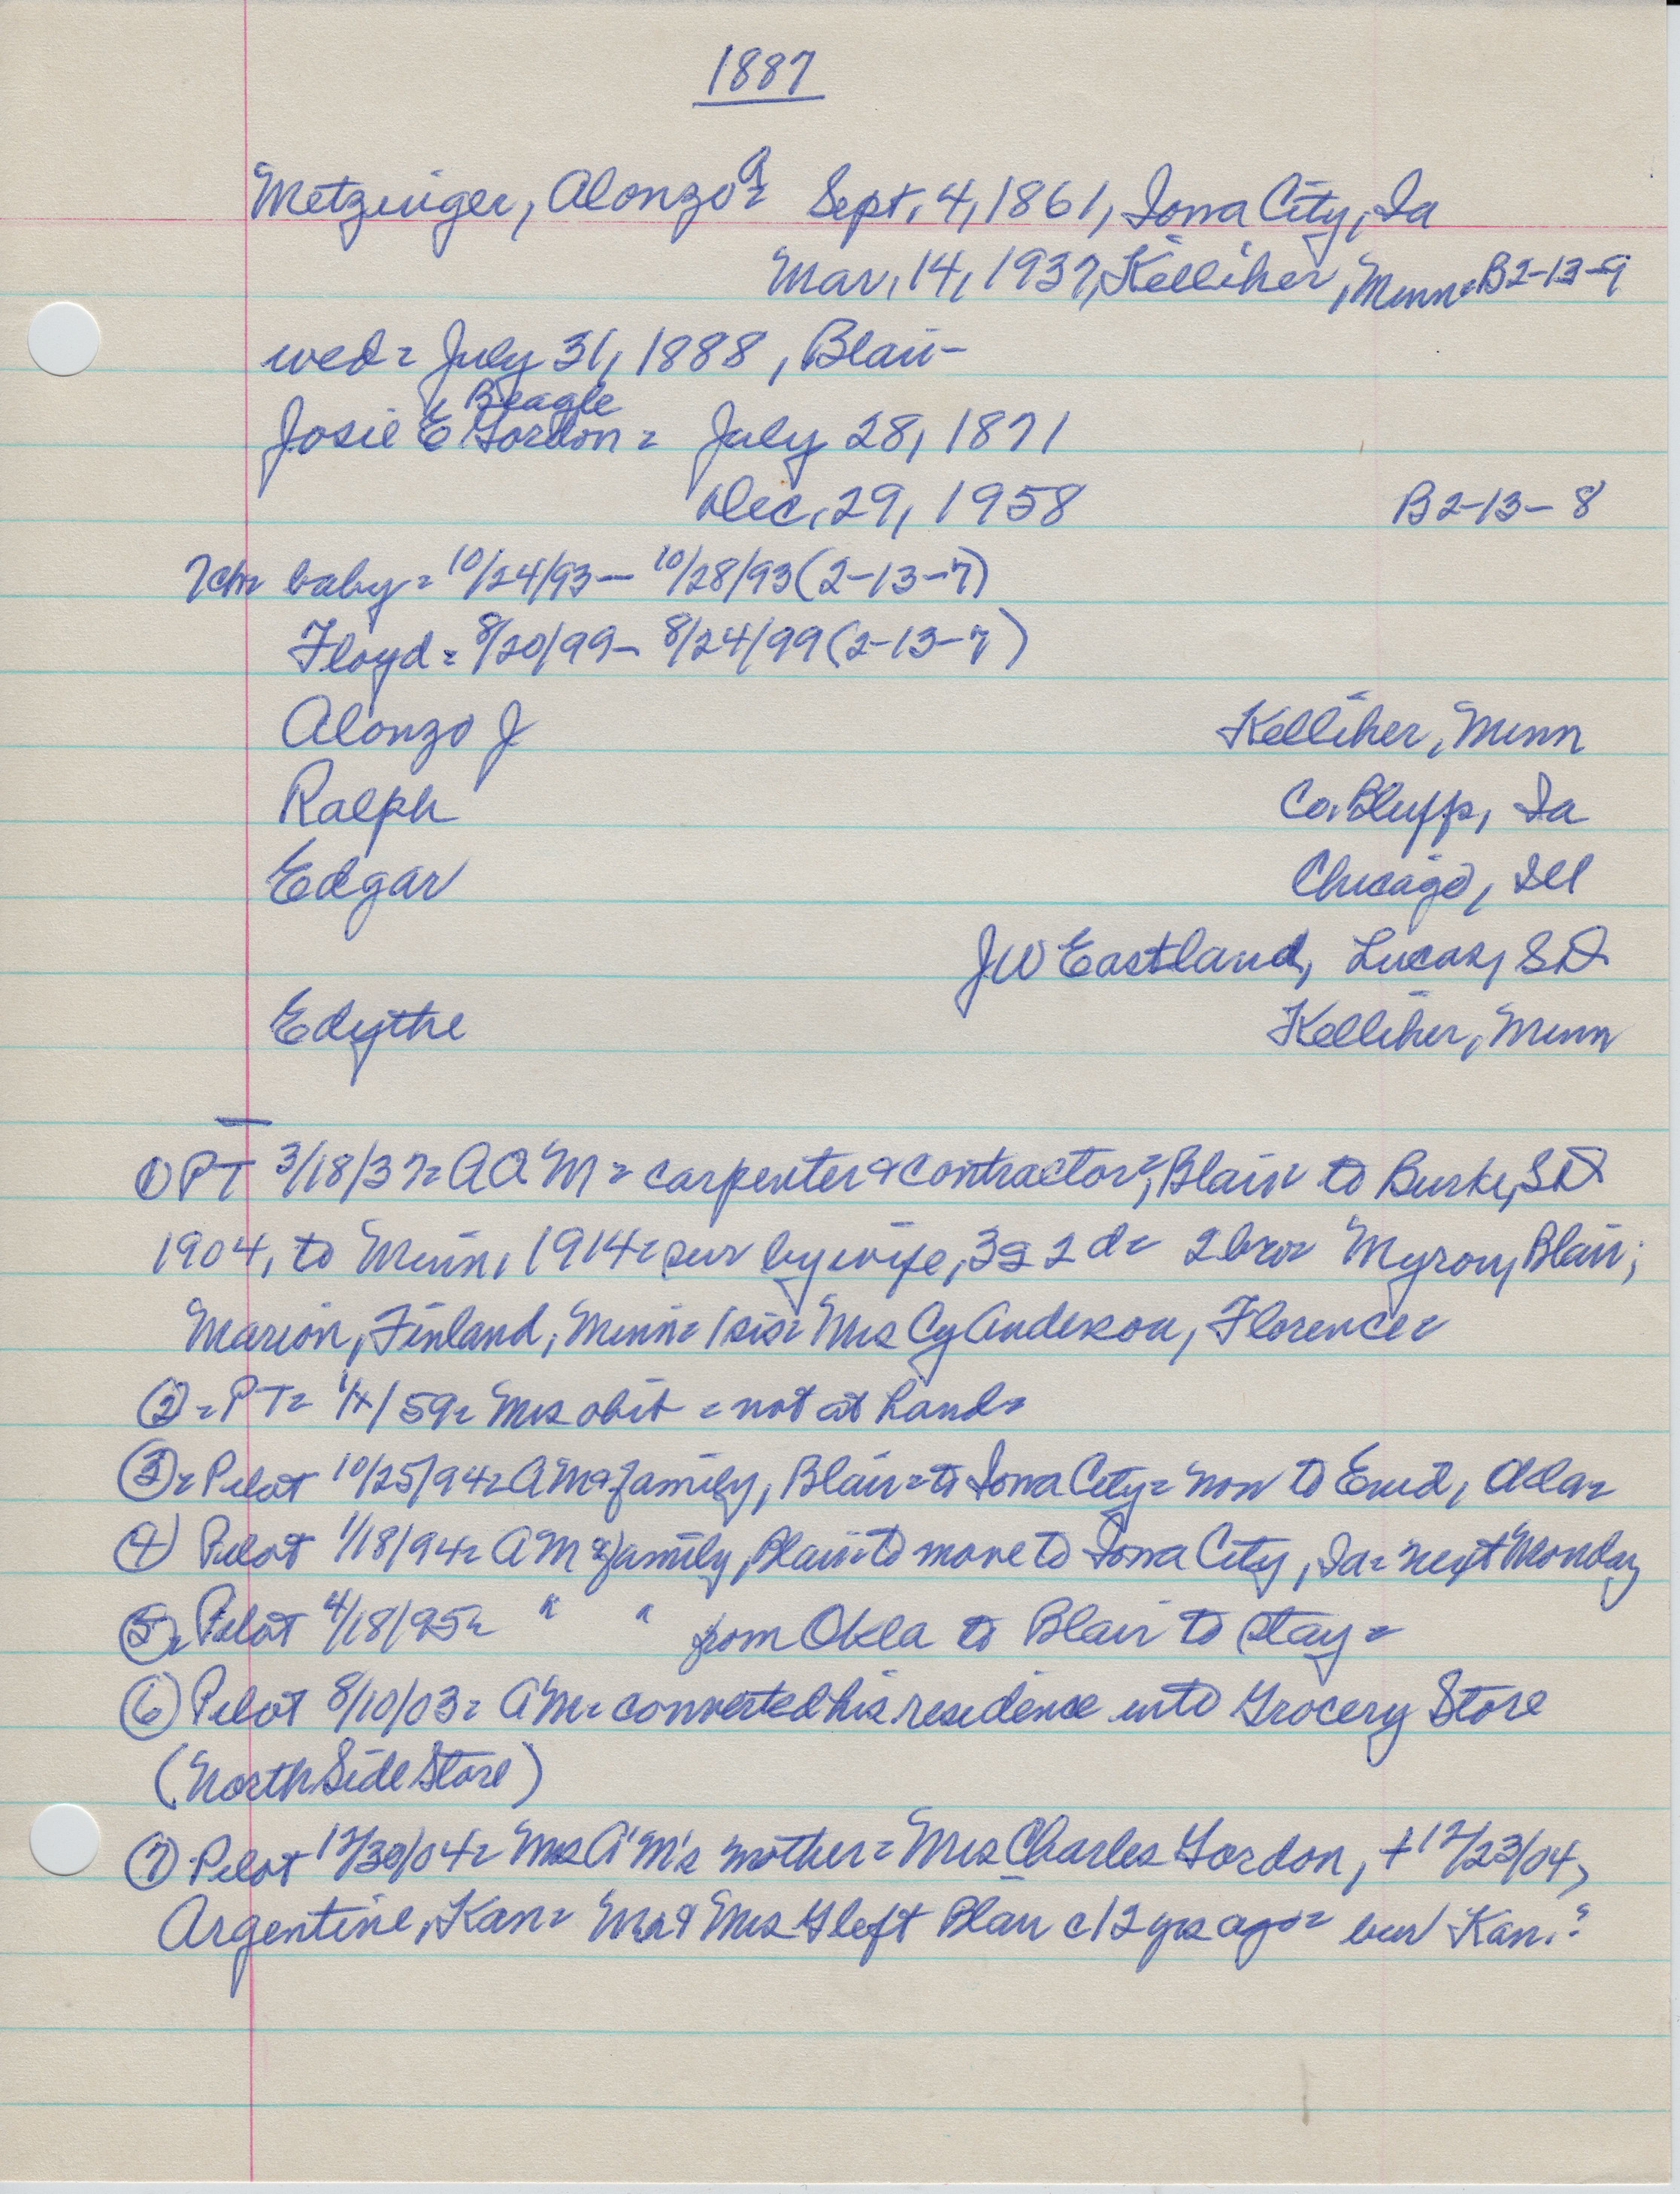 1887
Metzinger, Alonzo A= Sept, 4, 1861, Iowa City, Ia
Mar, 14, 1937, Kelliher, Minn= B2-13-9
wed= July 31, 1888, Blair-
Beagle
Josie E Gordon= July 28, 1871
Dec, 29, 1958 B2-13-8
7ch= baby= 10/24/93- 10/28/93 (2-13-7)
Floyd= 8/20/99- 8/24/99 (2-13-7)
Alonzo J Kelliher, Minn
Ralph Co. Bluffs, Ia
Edgar Chicago, Ill
JW Eastland, Lucas, SD
Edythe Kelliher, Minn
① PT 3/18/37= AAM= carpenter & contractor=, Blair to Burke, SD
1904, to Minn, 1914= sur by wife, 3s 2d= 2 bro= Myron, Blair;
Marion, Finland, Minn= 1 sis= Mrs Cy Anderson, Florence=
②= PT= 1/1/59= Mrs obit= not at hand=
③= Pilot 10/25/94= AM & family, Blair= to Iowa City= now to Enid, Okla=
④ Pilot 1/18/94= AM & family, Blair= to move to Iowa City, Ia= next Monday
⑤= Pilot 4/18/95= " " from Okla to Blair to stay=
⑥ Pilot 8/10/03= AM= converted his residence into Grocery Store
(North Side Store)
⑦ Pilot 12/30/04= Mrs A M's mother= Mrs Charles Gordon, +12/23/04,
Argentine, Kan= Mr & Mrs G left Blair c12 yrs ago= bur Kan.?